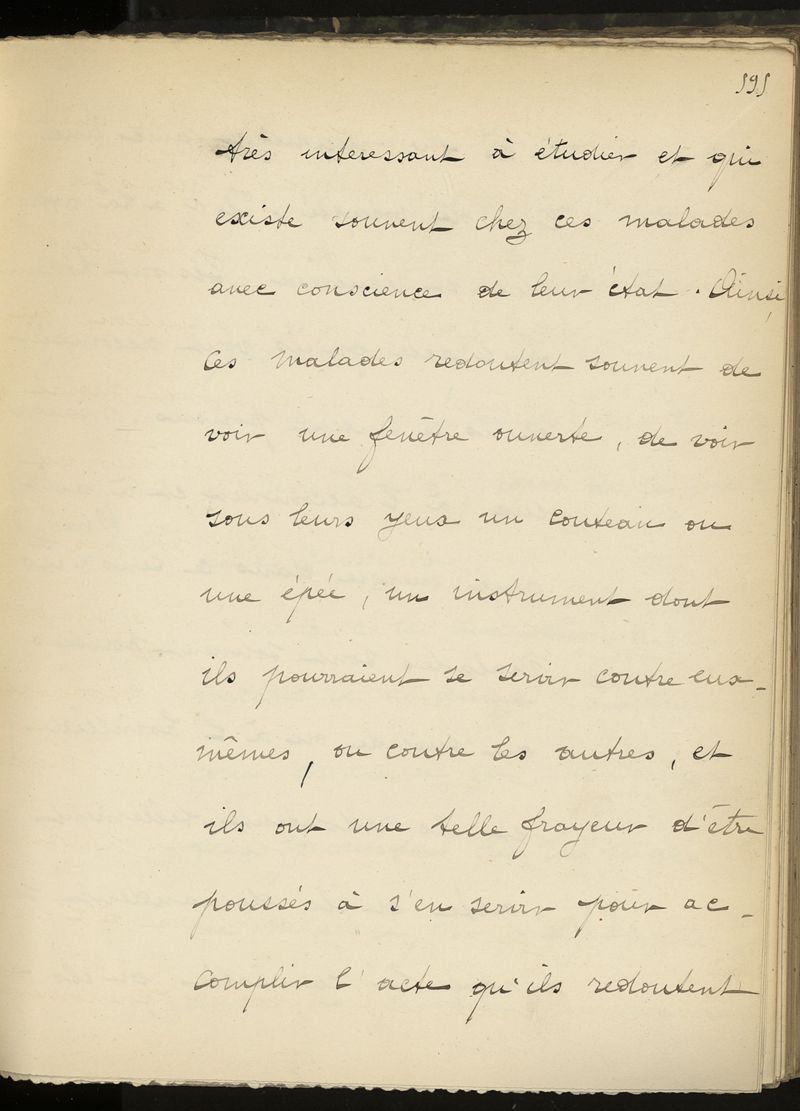 591
très interessant à étudier et qui
existe souvent chez ces malades
avec conscience de leur état. Ainsi,
ces malades redoutent souvent de
voir une fenêtre ouverte, de voir
sous leurs yeux un couteau ou
une épée, un instrument dont
ils pourraient se servir contre eux-
mêmes, ou contre les autres, et
ils ont une telle frayeur d'être
poussés à s'en servir pour ac-
complir l'acte qu'ils redoutent